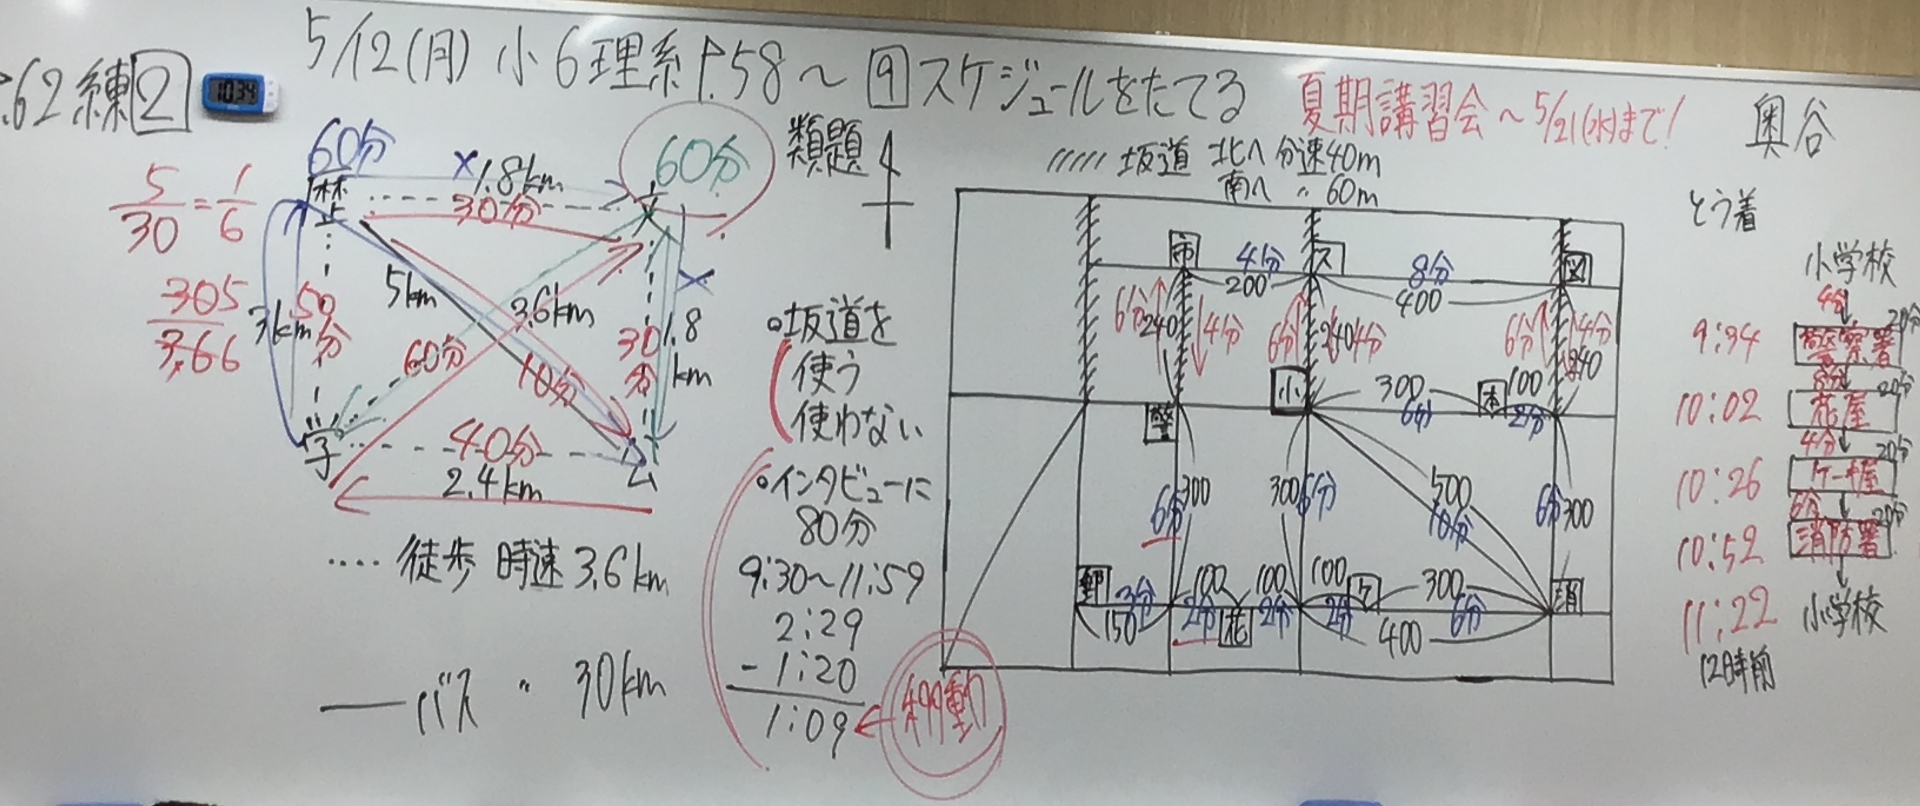 P.62練2
10:34
5/12(月) 小6理系 P.58〜 9 スケジュールをたてる
夏期講習会〜5/21(水)まで!
奥谷
5/30=1/6
305
3.66
60分
1.8km
30分
60分
禁
文
3km
50分
5km
3.6km
60分
10分
30分
1.8km
学
40分
2.4km
公
‥‥徒歩 時速3.6km
――バス 〃 30km
類題
坂道 北へ 分速40m
南へ 〃 60m
。坂道を
使う
使わない
。インタビューに
80分
9:30〜11:59
2:29
-1:20
1:09
移動
市
4分
200
ス
8分
400
図
6分
240
4分
6分
240
4分
6分
4分
240
警
小
300
6分
本
100
2分
6分
300
300
6分
500
10分
6分
300
郵
3分
150
100
2分
花
100
2分
100
2分
ケ
300
6分
消
400
とう着
小学校
4分
9:34
警察署
20分
8分
10:02
花屋
20分
4分
10:26
ケーキ屋
20分
6分
10:52
消防署
20分
11:22
小学校
12時前